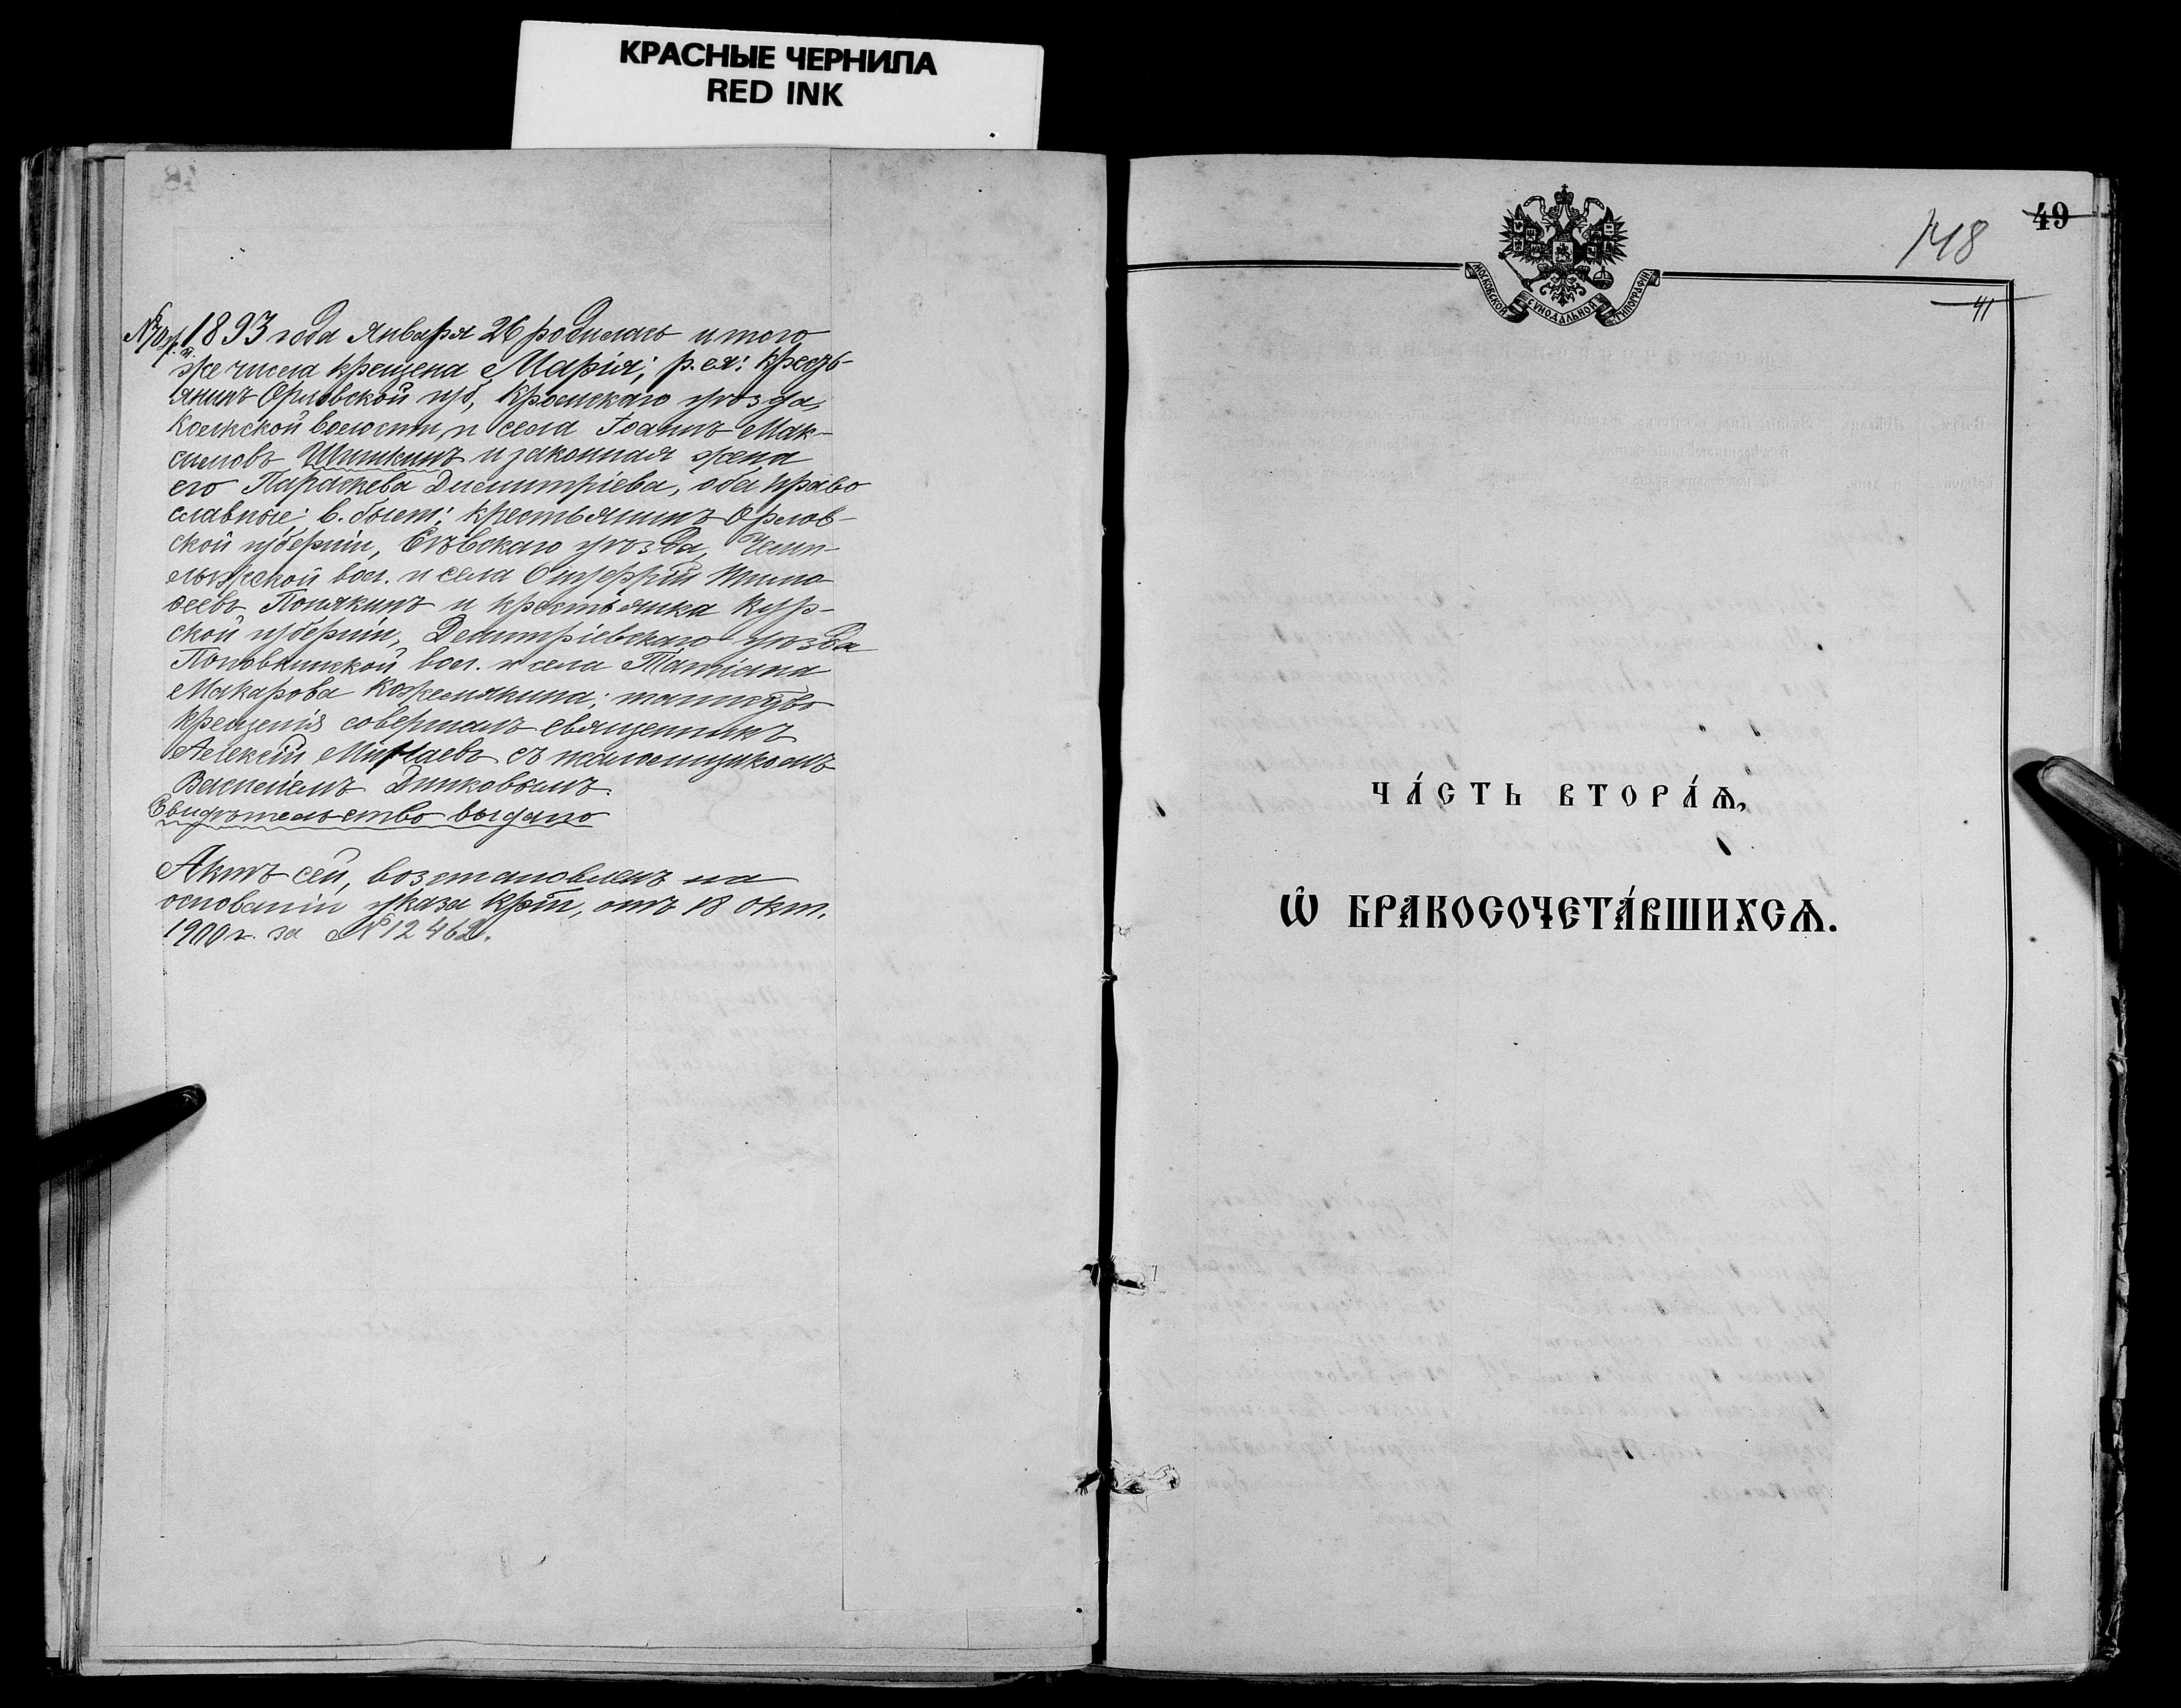 КРАСНЫЕ ЧЕРНИЛА
RED INK
1893 года Января 26 родилась и того
же числа крещена Марія; р. ея: кресть-
янинъ Орловской губ, Кромскаго уѣзда,
волости и села Іоаннъ Мак-
симовъ Шишкинъ и законная жена
его Параскева Димитріева, оба право
славные; в. были: крестьянинъ Орлов-
ской губерніи, Сѣвскаго уѣзда,
вол. и села Тимо-
ѳеевъ Понякинъ и крестьянка Кур-
ской губерніи, Демитріевскаго уѣзда
вол. и села Татіана
Макарова Кожемякина; таинство
крещенія совершалъ священникъ
Алексѣй съ псаломщикомъ
Василіемъ Дьяковымъ.
Свидѣтельство выдано
Актъ сей, возстановленъ на
основаніи указа отъ 18 окт.
1910 г. за № 12462.
МОСКОВСКОЙ СѴНОДАЛЬНОЙ ТИПОГРАФІИ
49
148
41
ЧА́СТЬ ВТОРА́Ѧ,
Ѽ БРАКОСОЧЕТА́ВШИХСѦ.